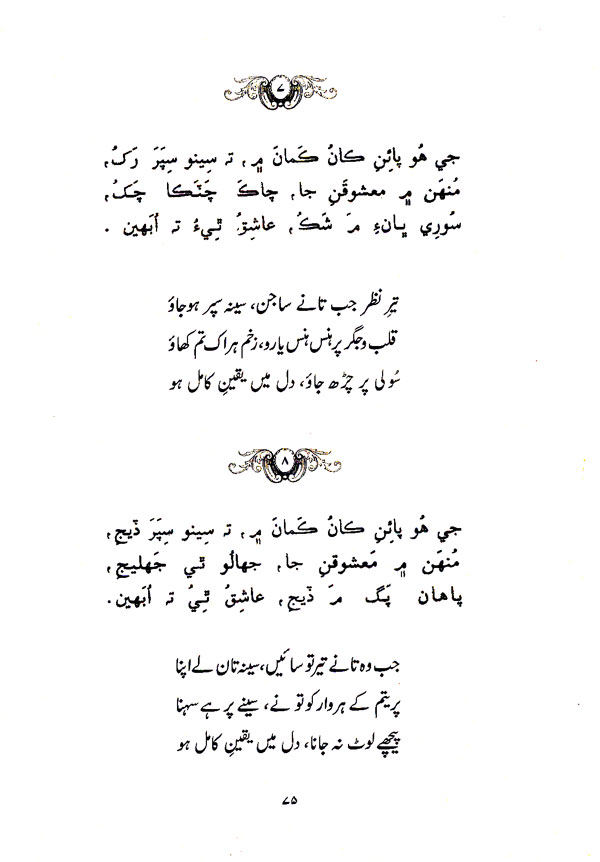 ۷
جي هُو پائِنِ ڪانُ ڪَمانَ ۾، تہ سِينو سِپَرَ رَکُ،
مُنهَن ۾ معشوقَنِ جا، چاڪَ چَٽَڪا چَکُ،
سُورِي ڀانءِ مَ شَڪُ، عاشِقُ ٿِيءُ تہ اُڀَهين .
تیرِ نظر جب تانے ساجن، سینہ سپر ہوجاؤ
قلب وجگر پر ہنس ہنس یارو، زخم ہراک تم کھاؤ
سُولی پر چڑھ جاؤ، دل میں یقینِ کامل ہو
۸
جي هُو پائِنِ ڪانُ ڪَمانَ ۾، تہ سِينو سِپَرَ ڏيج،
مُنهَن ۾ مَعشوقنِ جا، جهالُو ٿي جَهليج،
پاهان پَگ مَ ڏيج، عاشِقُ ٿِيُ تہ اُڀَهين.
جب وہ تانے تیر تو سائیں، سینہ تان لے اپنا
پریتم کے ہر وار کو تو نے، سینے پر ہے سہنا
پیچھے لوٹ نہ جانا، دل میں یقینِ کامل ہو
۷۵